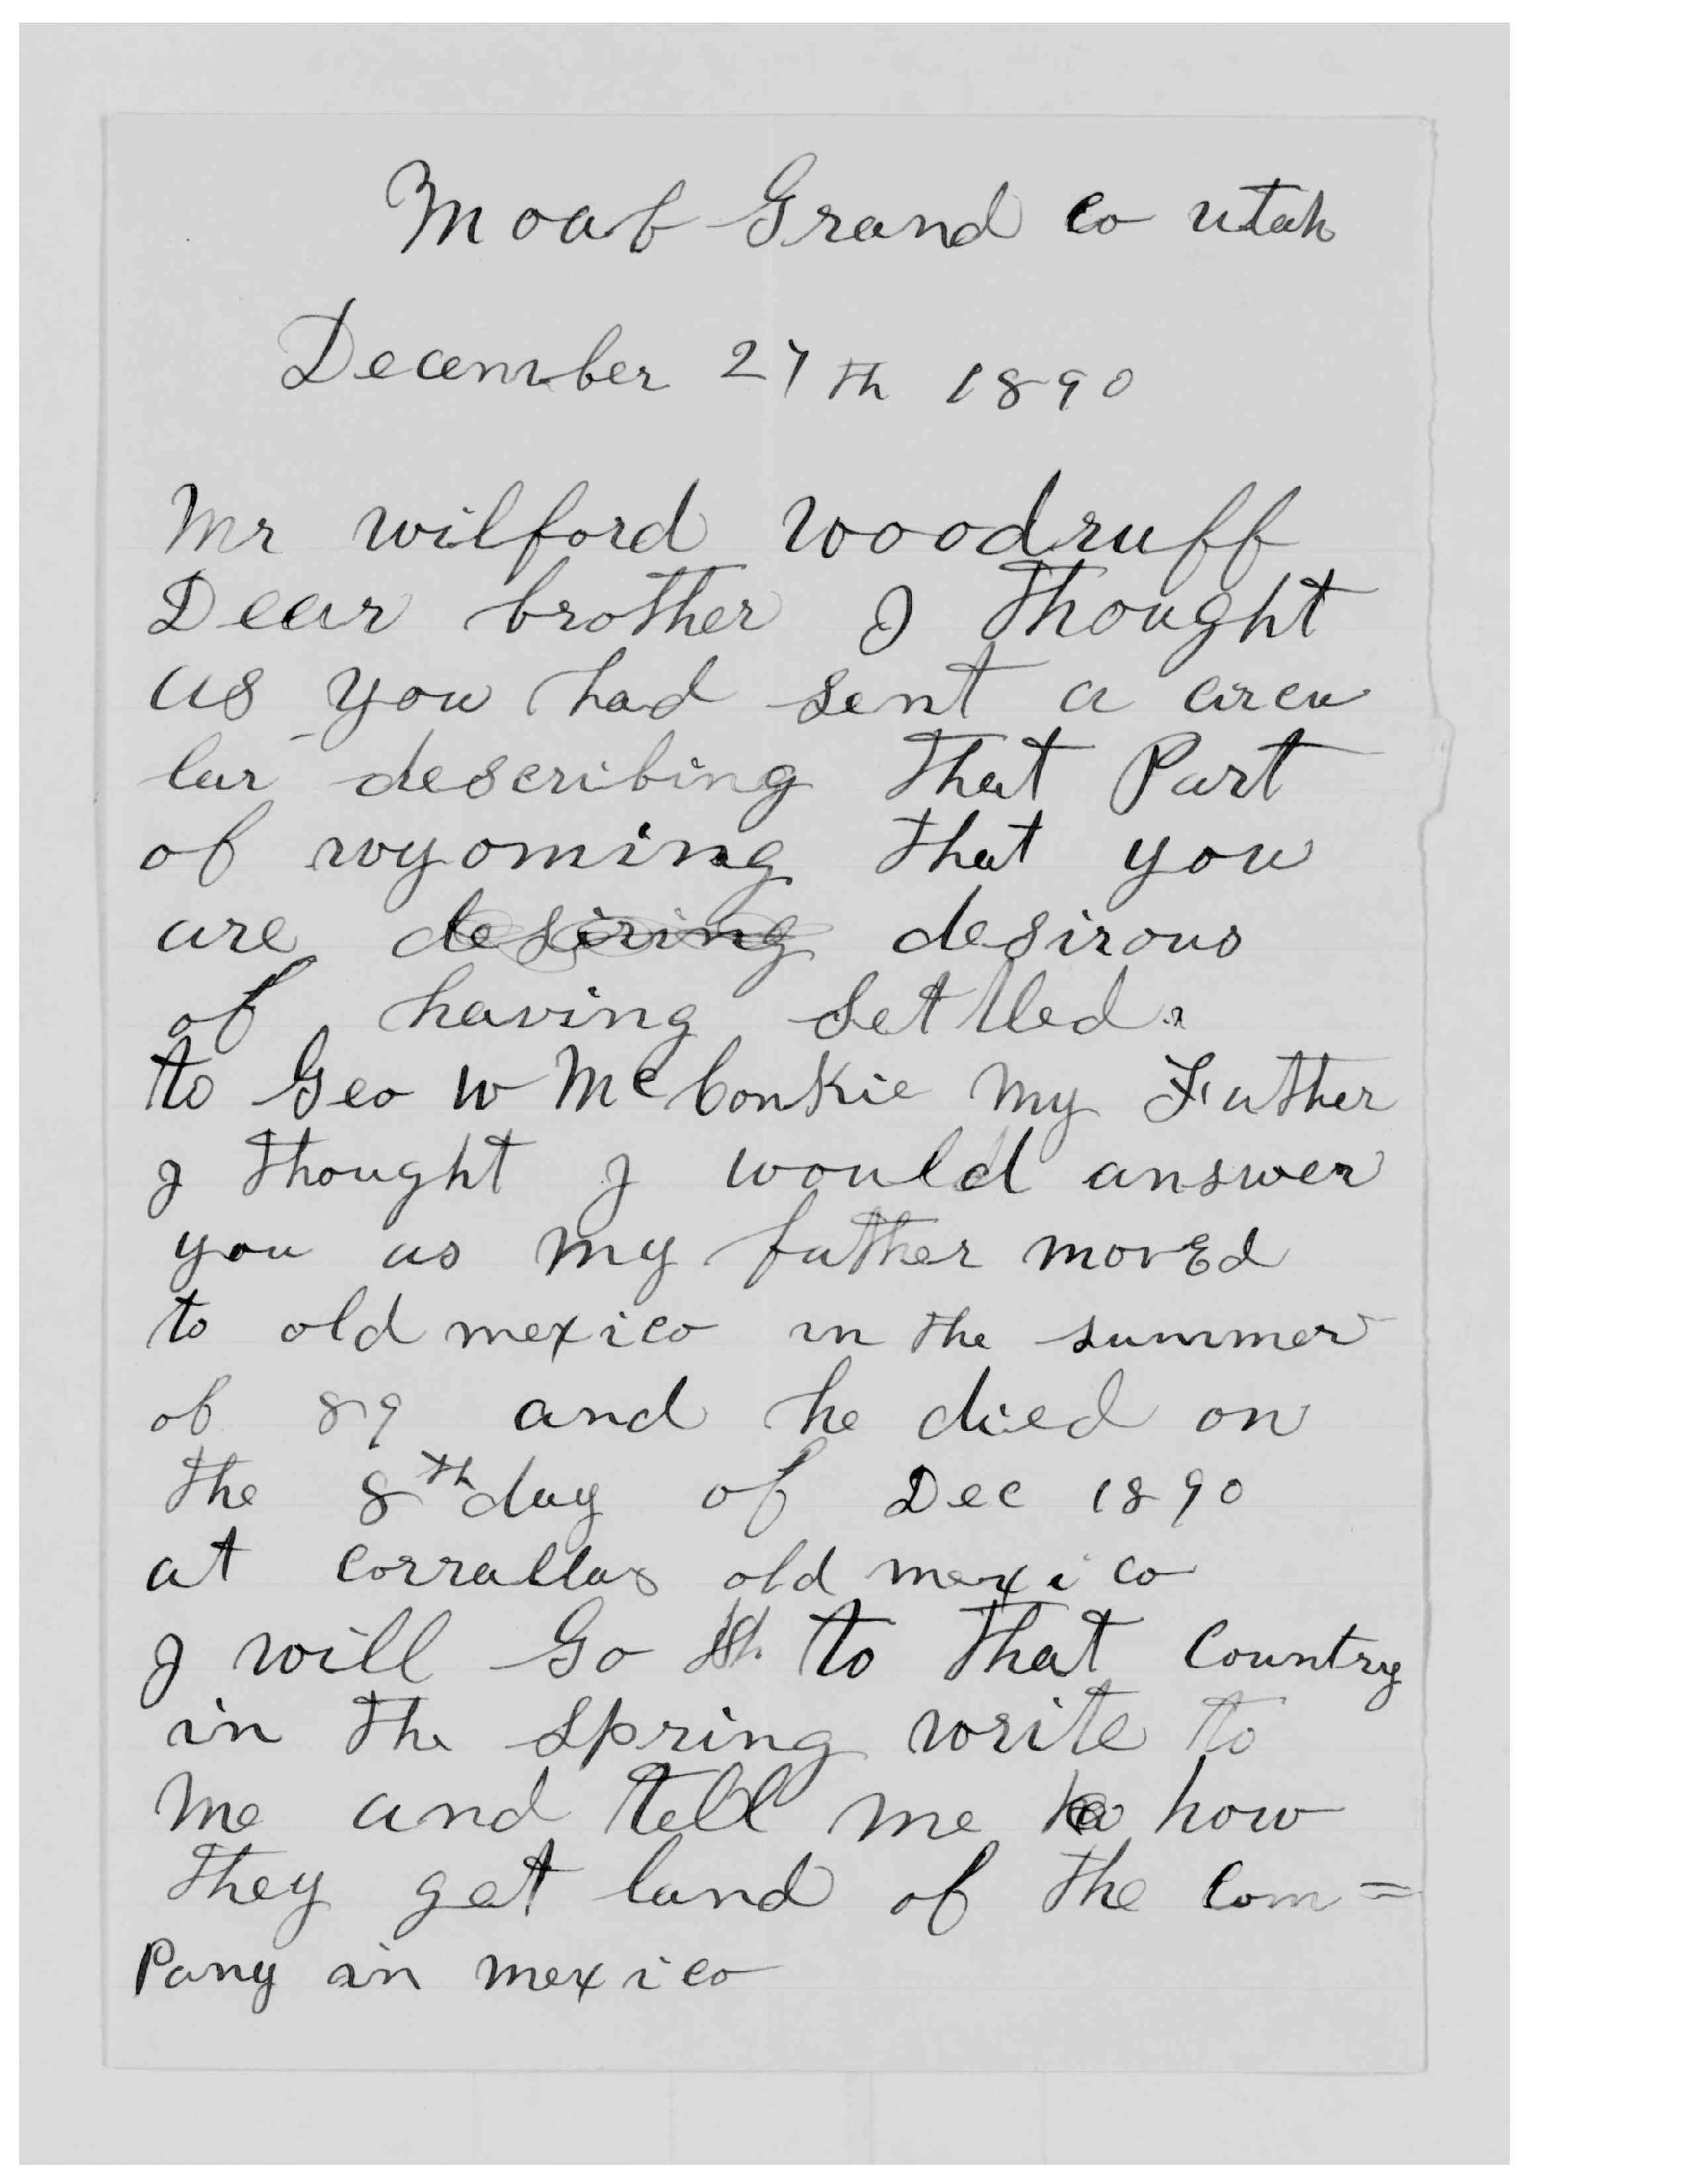 Moab Grand co utah
December 27th 1890
Mr wilford woodruff
Dear brother I thought
as you had sent a circu
lar describing that Part
of wyoming that you
are desiring desirous
of having settled.
to Geo W McConkie my Father
I thought I would answer
you as my father moved
to old mexico in the summer
of 89 and he died on
the 8th day of Dec 1890
at Corrallas old mexico
I will Go to that Country
in the spring write to
me and tell me how
they get land of the Com=
Pany in mexico